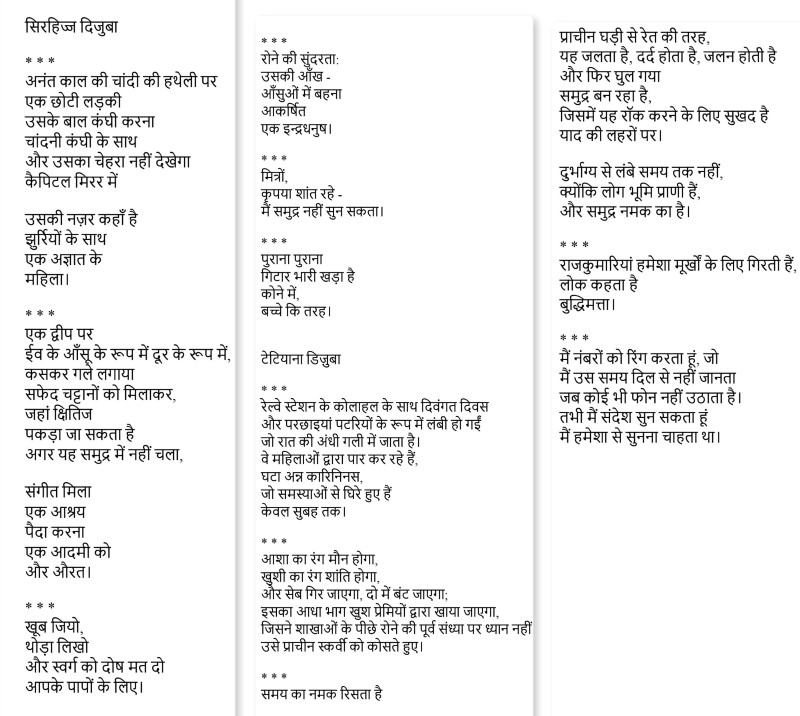 सिरहिज्ज दिजुबा
* * *
अनंत काल की चांदी की हथेली पर
एक छोटी लड़की
उसके बाल कंघी करना
चांदनी कंघी के साथ
और उसका चेहरा नहीं देखेगा
कैपिटल मिरर में
उसकी नज़र कहाँ है
झुर्रियों के साथ
एक अज्ञात के
महिला।
* * *
एक द्वीप पर
ईव के आँसू के रूप में दूर के रूप में,
कसकर गले लगाया
सफेद चट्टानों को मिलाकर,
जहां क्षितिज
पकड़ा जा सकता है
अगर यह समुद्र में नहीं चला,
संगीत मिला
एक आश्रय
पैदा करना
एक आदमी को
और औरत।
* * *
खूब जियो,
थोड़ा लिखो
और स्वर्ग को दोष मत दो
आपके पापों के लिए।
* * *
रोने की सुंदरता:
उसकी आँख -
आँसुओं में बहना
आकर्षित
एक इन्द्रधनुष।
* * *
मित्रों,
कृपया शांत रहे -
मैं समुद्र नहीं सुन सकता।
* * *
पुराना पुराना
गिटार भारी खड़ा है
कोने में,
बच्चे कि तरह।
टेटियाना डिज़ुबा
* * *
रेल्वे स्टेशन के कोलाहल के साथ दिवंगत दिवस
और परछाइयां पटरियों के रूप में लंबी हो गईं
जो रात की अंधी गली में जाता है।
वे महिलाओं द्वारा पार कर रहे हैं,
घटा अन्न कारिनिनस,
जो समस्याओं से घिरे हुए हैं
केवल सुबह तक।
* * *
आशा का रंग मौन होगा,
खुशी का रंग शांति होगा,
और सेब गिर जाएगा, दो में बंट जाएगा;
इसका आधा भाग खुश प्रेमियों द्वारा खाया जाएगा,
जिसने शाखाओं के पीछे रोने की पूर्व संध्या पर ध्यान नहीं
उसे प्राचीन स्कर्वी को कोसते हुए।
* * *
समय का नमक रिसता है
प्राचीन घड़ी से रेत की तरह,
यह जलता है, दर्द होता है, जलन होती है
और फिर घुल गया
समुद्र बन रहा है,
जिसमें यह रॉक करने के लिए सुखद है
याद की लहरों पर।
दुर्भाग्य से लंबे समय तक नहीं,
क्योंकि लोग भूमि प्राणी हैं,
और समुद्र नमक का है।
* * *
राजकुमारियां हमेशा मूर्खों के लिए गिरती हैं,
लोक कहता है
बुद्धिमत्ता।
* * *
मैं नंबरों को रिंग करता हूं, जो
मैं उस समय दिल से नहीं जानता
जब कोई भी फोन नहीं उठाता है।
तभी मैं संदेश सुन सकता हूं
मैं हमेशा से सुनना चाहता था।